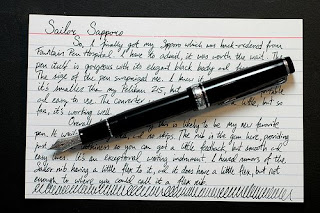 Sailor Sapporo
So, I finally got my Sapporo which was back-ordered from
Fountain Pen Hospital. I have to admit, it was worth the wait. The
pen itself is gorgeous with its elegant black body and
The size of the pen surprised me. I knew it
it's smaller than my Pelikan 215, but
and easy to use. The converter is a little, but so
far, it's working well.
is likely to be my new favorite
pen. It no skips. The nib is the gem here, providing
just so you can get a little feedback, but smooth and
easy lines. It's an exceptional writing instrument. I heard rumors of the
Sailor nib having a little flex to it, and it does have a little flex, but not
enough to where you could call it a flex nib.